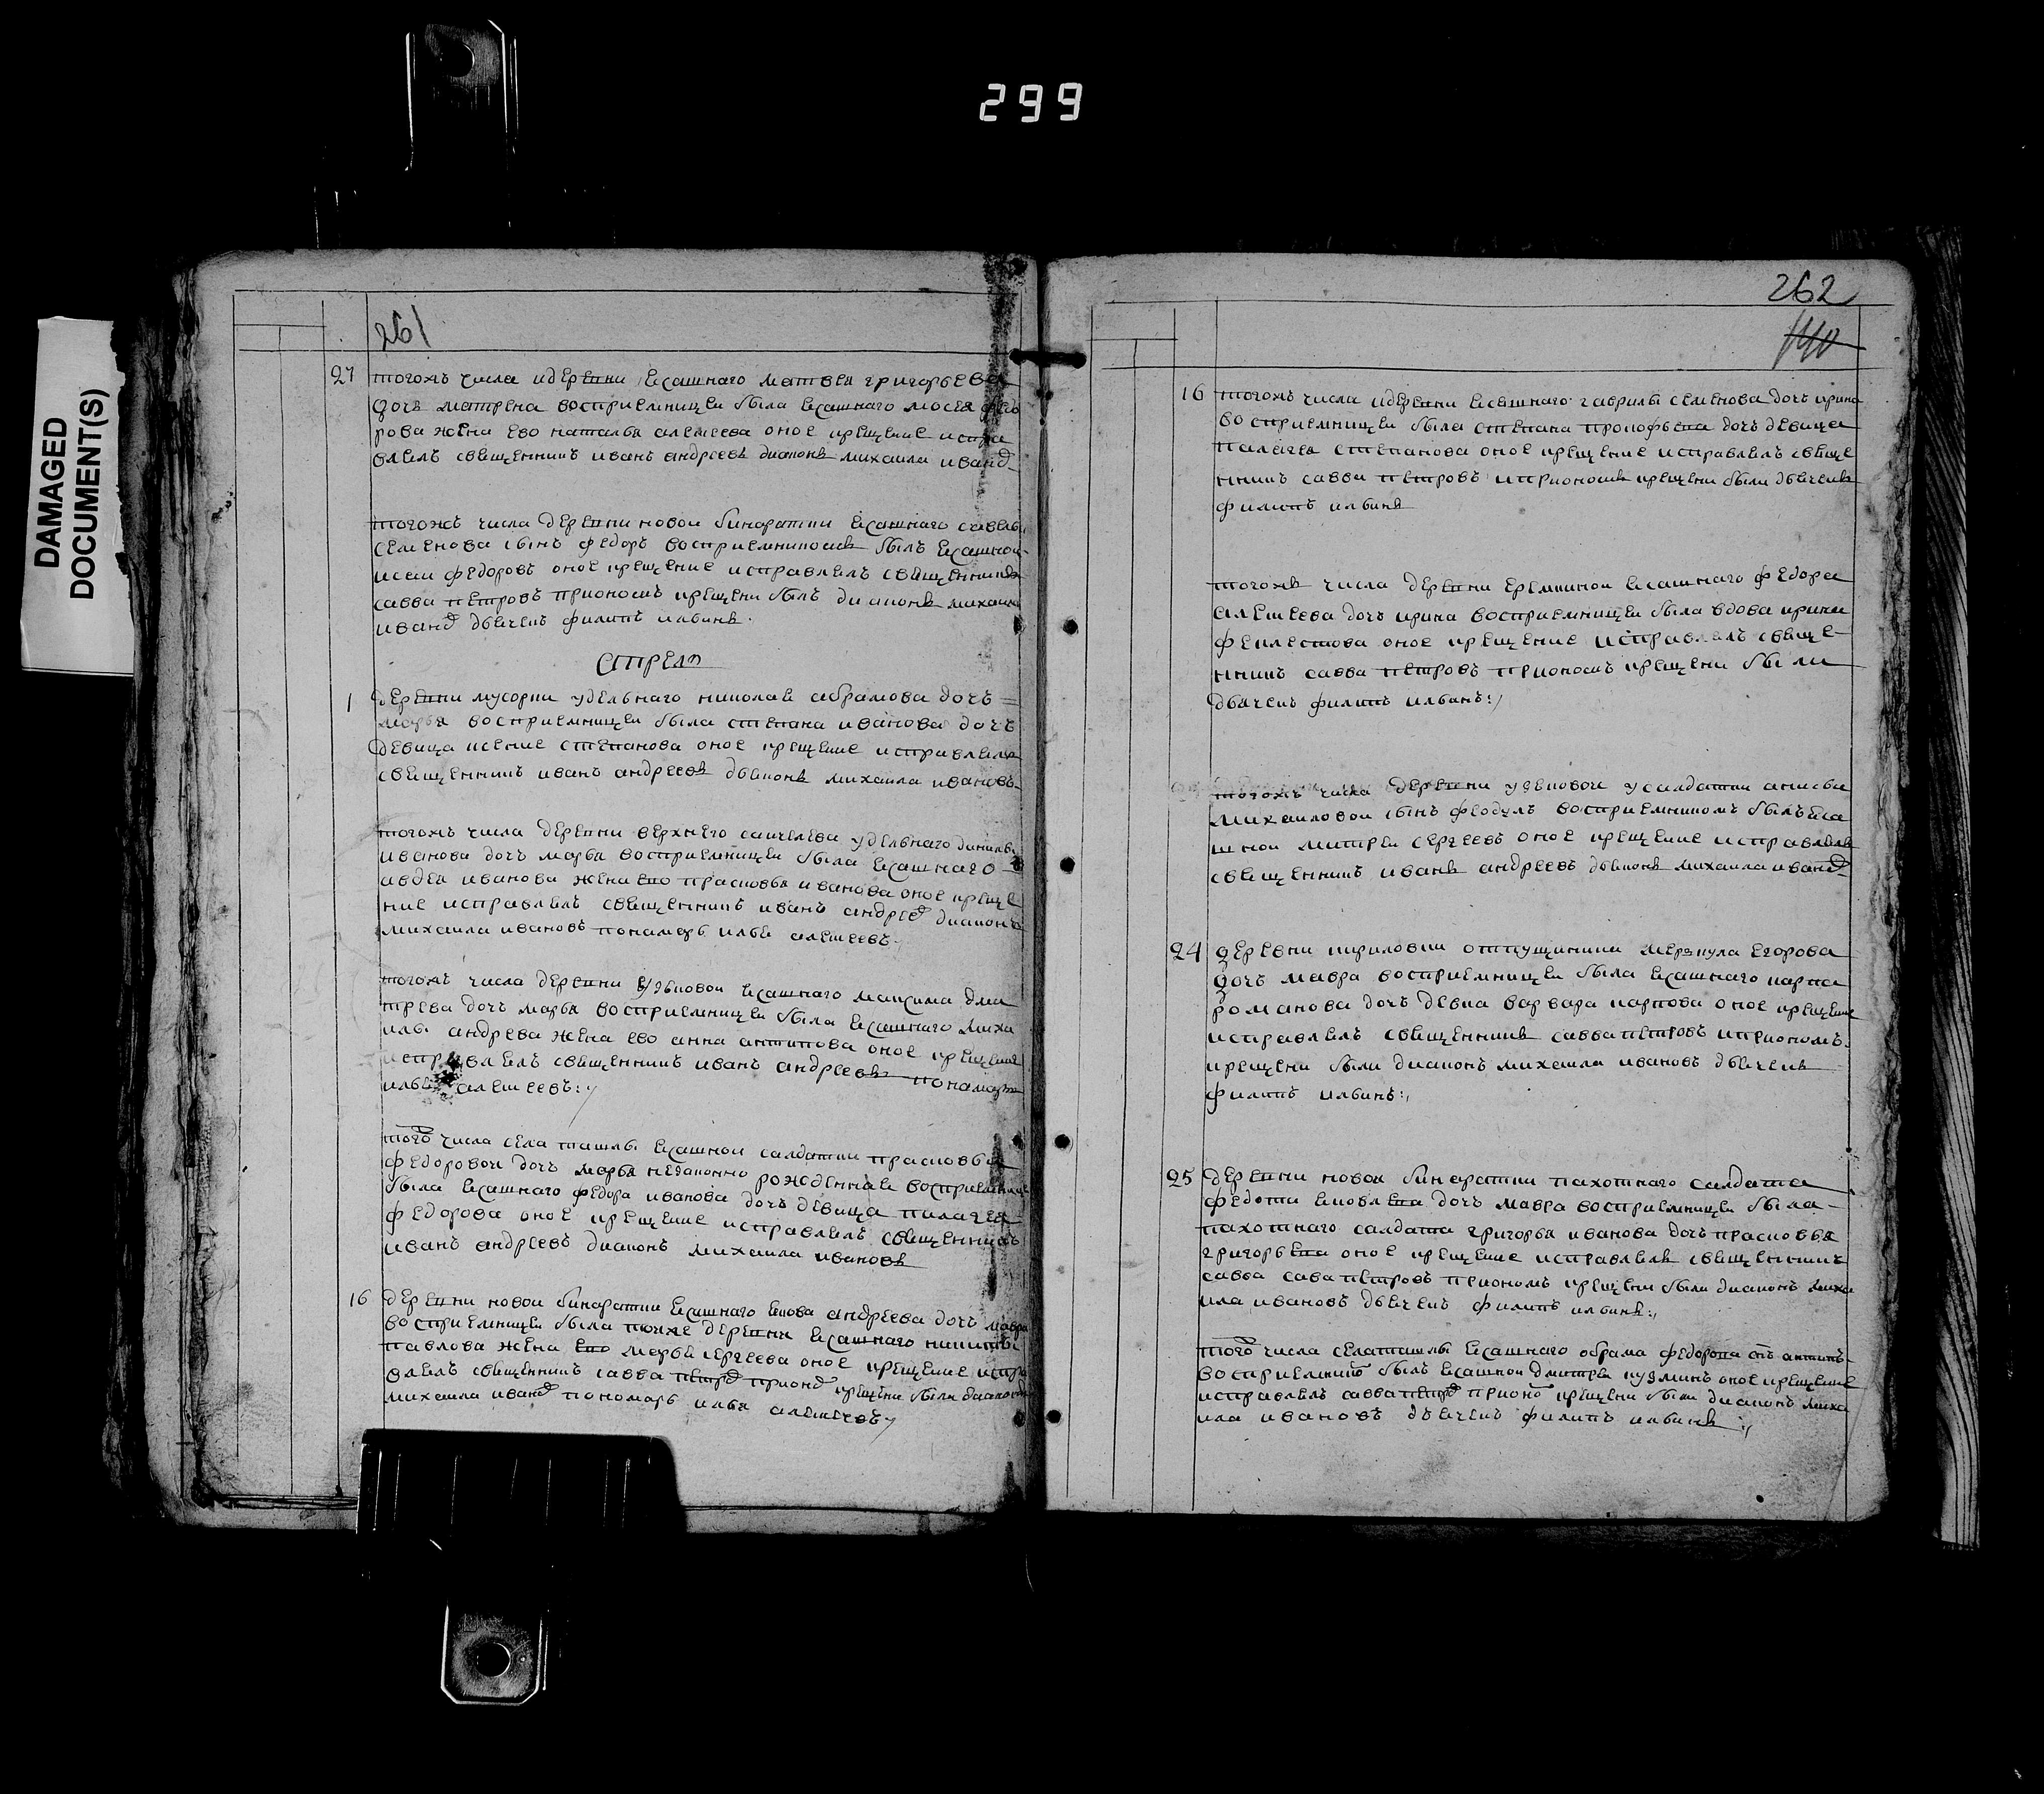 299
DAMAGED
DOCUMENT(S)
261
27 тогожъ числа идеревни ясашнаго матвея григорьева
дочь матрена восприемницеи была ясашнаго мосея федо
рова жена ево наталья алеѯеева оное крещение испра
влялъ священникъ иванъ андреевъ диаконъ михаила иванов
тогожъ числа деревни новои бинаратки ясашнаго савелья
семенова сынъ федоръ восприемникомъ былъ ясашнои
исаи федоровъ оное крещение исправлялъ священникъ
савва петровъ приономъ крещени былъ диаконъ михаила
иванов дьячекъ филипъ ильинъ.
1 деревни мусорки удельнаго николая абрамова дочь
марья восприемницеи была степана иванова дочь
девица ксения степанова оное крещение исправлялъ
священникъ иванъ андреевъ дьяконъ михаила ивановъ
тогожъ числа деревни верхнего санчелеева удельнаго данилы
иванова дочь марья восприемницеи была ясашнаго
авдея иванова жена ево прасковья иванова оное креще
ние исправлялъ священникъ иванъ андреев диаконъ
михаила ивановъ пономарь илья алеѯеевъ
тогожъ числа деревни узюковои ясашнаго максима дми
трева дочь марья восприемницеи была ясашнаго миха
илы андрева жена ево анна антипова оное крещение
исправлялъ священникъ иванъ андреевъ понамарь
илья алеѯеевъ
того числа села ташлы ясашнои салдатки прасковьи
федоровои дочь марья незаконно рожденная восприемнице
была ясашнаго федора иванова дочь девица палагея
федорова оное крещение исправлялъ священникъ
иванъ андреевъ диаконъ михаила ивановъ
16 деревни новои бинаратки ясашнаго якова андреева дочь мавра
восприемницеи была тояже деревни ясашнаго никиты
павлова жена ево марья сергеева оное крещение испра
влялъ священникъ савва петров прионом крещени были диаконъ
михаила иванов пономарь илья алеѯеевъ
262
140
16 тогожъ числа идеревни ясашнаго гаврилы семенова дочь ирина
восприемницеи была степана прокофьева дочь девица
палагея степанова оное крещение исправлялъ свяще
нникъ савва петровъ иприономъ крещени были дьячекъ
филипъ ильинъ
тогожъ числа деревни еремкинои ясашнаго федора
алеѯеева дочь ирина восприемницеи была вдова ирина
оное крещение исправлялъ свяще
нникъ савва петровъ приономъ крещени были
дьячекъ филипъ ильинъ
тогожъ числа деревни узюковои у салдатки анисьи
михаиловои сынъ феодулъ восприемникомъ былъ яса
шнои митреи сергеевъ оное крещение исправлялъ
священникъ иванъ андреевъ дьяконъ михаила иванов
24 деревни кириловки отпущиника егорова
дочь мавра восприемницеи была ясашнаго карпа
романова дочь девка варвара карпова оное крещение
исправлялъ священникъ савва петровъ иприономъ
крещени были диаконъ михаила ивановъ дьячекъ
филипъ ильинъ
25 деревни новои бинаратки пахотнаго салдата
федота яковлева дочь мавра восприемницеи была
пахотнаго салдата григорья иванова дочь прасковья
григорьева оное крещение исправлялъ священникъ
савва сава петровъ приономъ крещени были диаконъ миха
ила ивановъ дьячекъ филипъ ильинъ
того числа села ташлы ясашнаго абрама федорова снъ антипъ
восприемнико былъ ясашнои дмитреи кузминъ оное крещение
исправлялъ савва петров прионо крещени были диаконъ миха
ила ивановъ дьячекъ филипъ ильинъ